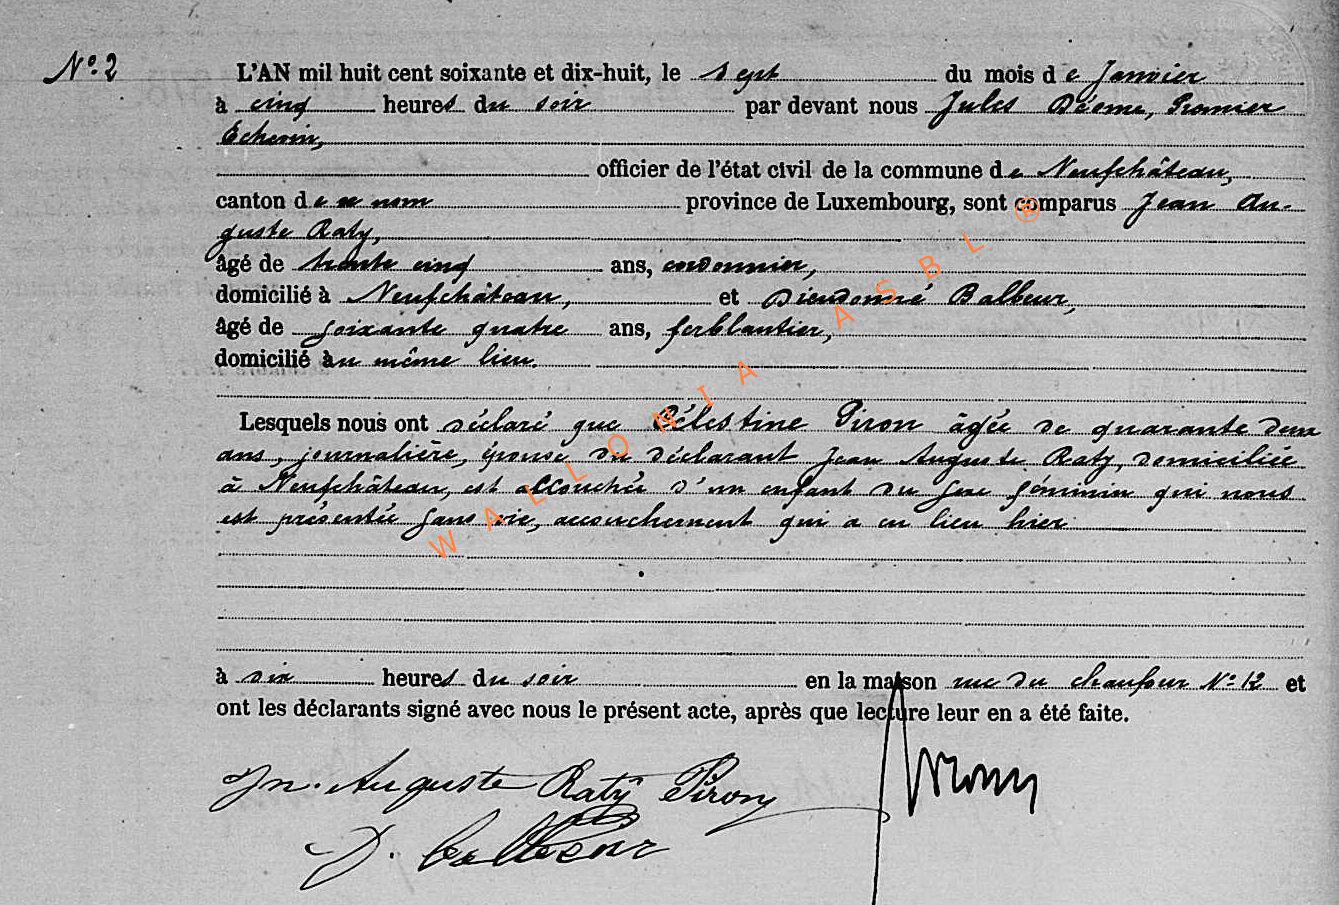 N° 2
L'AN mil huit cent soixante et dix-huit, le sept du mois de Janvier
à cinq heures du soir par devant nous Jules Déome, Premier
Echevin,
officier de l'état civil de la commune de Neufchâteau,
canton de ce nom province de Luxembourg, sont comparus Jean Au-
guste Raty,
âgé de trente cinq ans, cordonnier,
domicilié à Neufchâteau, et Dieudonné Balbeur,
âgé de soixante quatre ans, ferblantier,
domicilié au même lieu.
Lesquels nous ont déclaré que Célestine Piron âgée de quarante deux
ans, journalière, épouse du déclarant Jean Auguste Raty, domiciliée
à Neufchâteau, est accouchée d'un enfant du sexe féminin qui nous
est présentée sans vie, accouchement qui a eu lieu hier
à six heures du soir en la maison rue du chaufour N° 12 et
ont les déclarants signé avec nous le présent acte, après que lecture leur en a été faite.
Jn. Auguste Raty Piron
D. Balbeur
WALLONIA ASBL ®